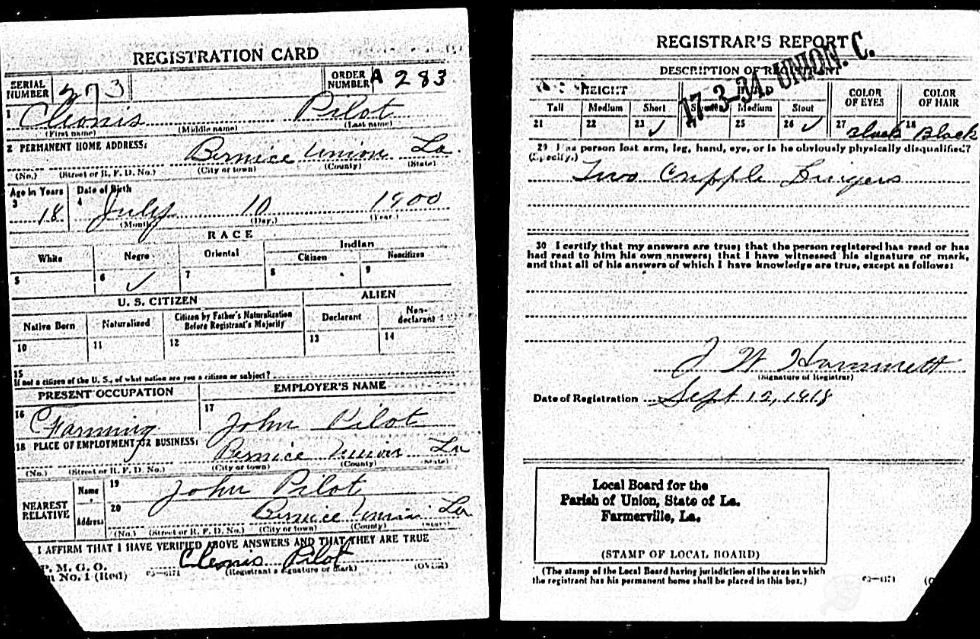 REGISTRATION CARD
SERIAL NUMBER 273
ORDER NUMBER A 283
1 Cleonis Pilot
(First name) (Middle name) (Last name)
2 PERMANENT HOME ADDRESS:
Bernice Union La.
(No.) (Street or R. F. D. No.) (City or town) (County) (State)
Age in Years Date of Birth
3 18 4 July 10 1900
(Month.) (Day.) (Year.)
RACE
White Negro Oriental Indian
Citizen Noncitizen
5 6 ✓ 7 8 9
U. S. CITIZEN ALIEN
Native Born Naturalized Citizen by Father's Naturalization Before Registrant's Majority Declarant Non-declarant
10 11 12 13 14
15
If not a citizen of the U. S., of what nation are you a citizen or subject?
PRESENT OCCUPATION EMPLOYER'S NAME
16 Farming 17 John Pilot
18 PLACE OF EMPLOYMENT OR BUSINESS:
Bernice Union La
(No.) (Street or R. F. D. No.) (City or town) (County) (State)
NEAREST RELATIVE
Name 19 John Pilot
Address 20 Bernice Union La
(No.) (Street or R. F. D. No.) (City or town) (County) (State)
I AFFIRM THAT I HAVE VERIFIED ABOVE ANSWERS AND THAT THEY ARE TRUE
P. M. G. O.
No. 1 (Red) 03—6171
Cleonis Pilot
(Registrant's signature or mark) (OVER)
REGISTRAR'S REPORT
17-3-34. UNION. C.
DESCRIPTION OF REGISTRANT
HEIGHT COLOR OF EYES COLOR OF HAIR
Tall Medium Short Slender Medium Stout
21 22 23 ✓ 25 26 ✓ 27 black 18 Black
29 Has person lost arm, leg, hand, eye, or is he obviously physically disqualified?
(Specify.)
Two Cripple Fingers
30 I certify that my answers are true; that the person registered has read or has
had read to him his own answers; that I have witnessed his signature or mark,
and that all of his answers of which I have knowledge are true, except as follows:
J W Hammett
(Signature of Registrar)
Date of Registration Sept 12, 1918
Local Board for the
Parish of Union, State of La.
Farmerville, La.
(STAMP OF LOCAL BOARD)
(The stamp of the Local Board having jurisdiction of the area in which
the registrant has his permanent home shall be placed in this box.)
03—6171